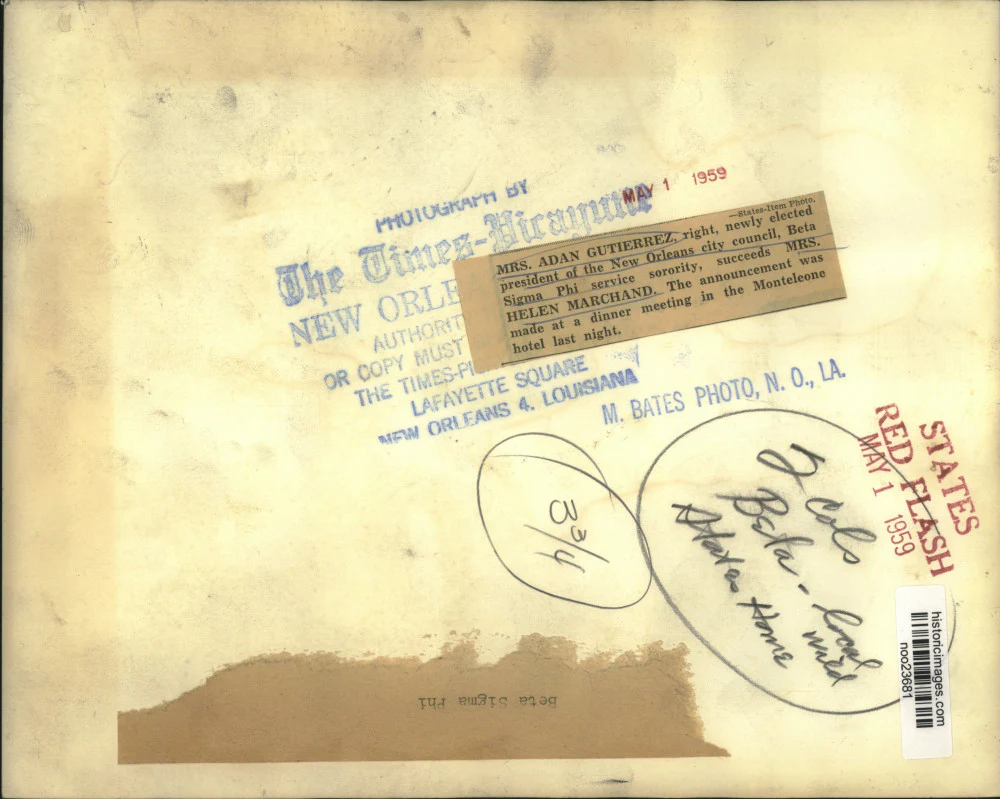 MAY 1 1959
PHOTOGRAPH BY
The Times-Picayune
NEW ORLE
AUTHORIT
OR COPY MUST
THE TIMES-PI
LAFAYETTE SQUARE
NEW ORLEANS 4, LOUISIANA
—States-Item Photo.
MRS. ADAN GUTIERREZ, right, newly elected
president of the New Orleans city council, Beta
Sigma Phi service sorority, succeeds MRS.
HELEN MARCHAND. The announcement was
made at a dinner meeting in the Monteleone
hotel last night.
M. BATES PHOTO, N. O., LA.
STATES
RED FLASH
MAY 1 1959
3 3/4
2 Cols
Beta - local
States Home
historicimages.com
noo23681
Beta Sigma Phi